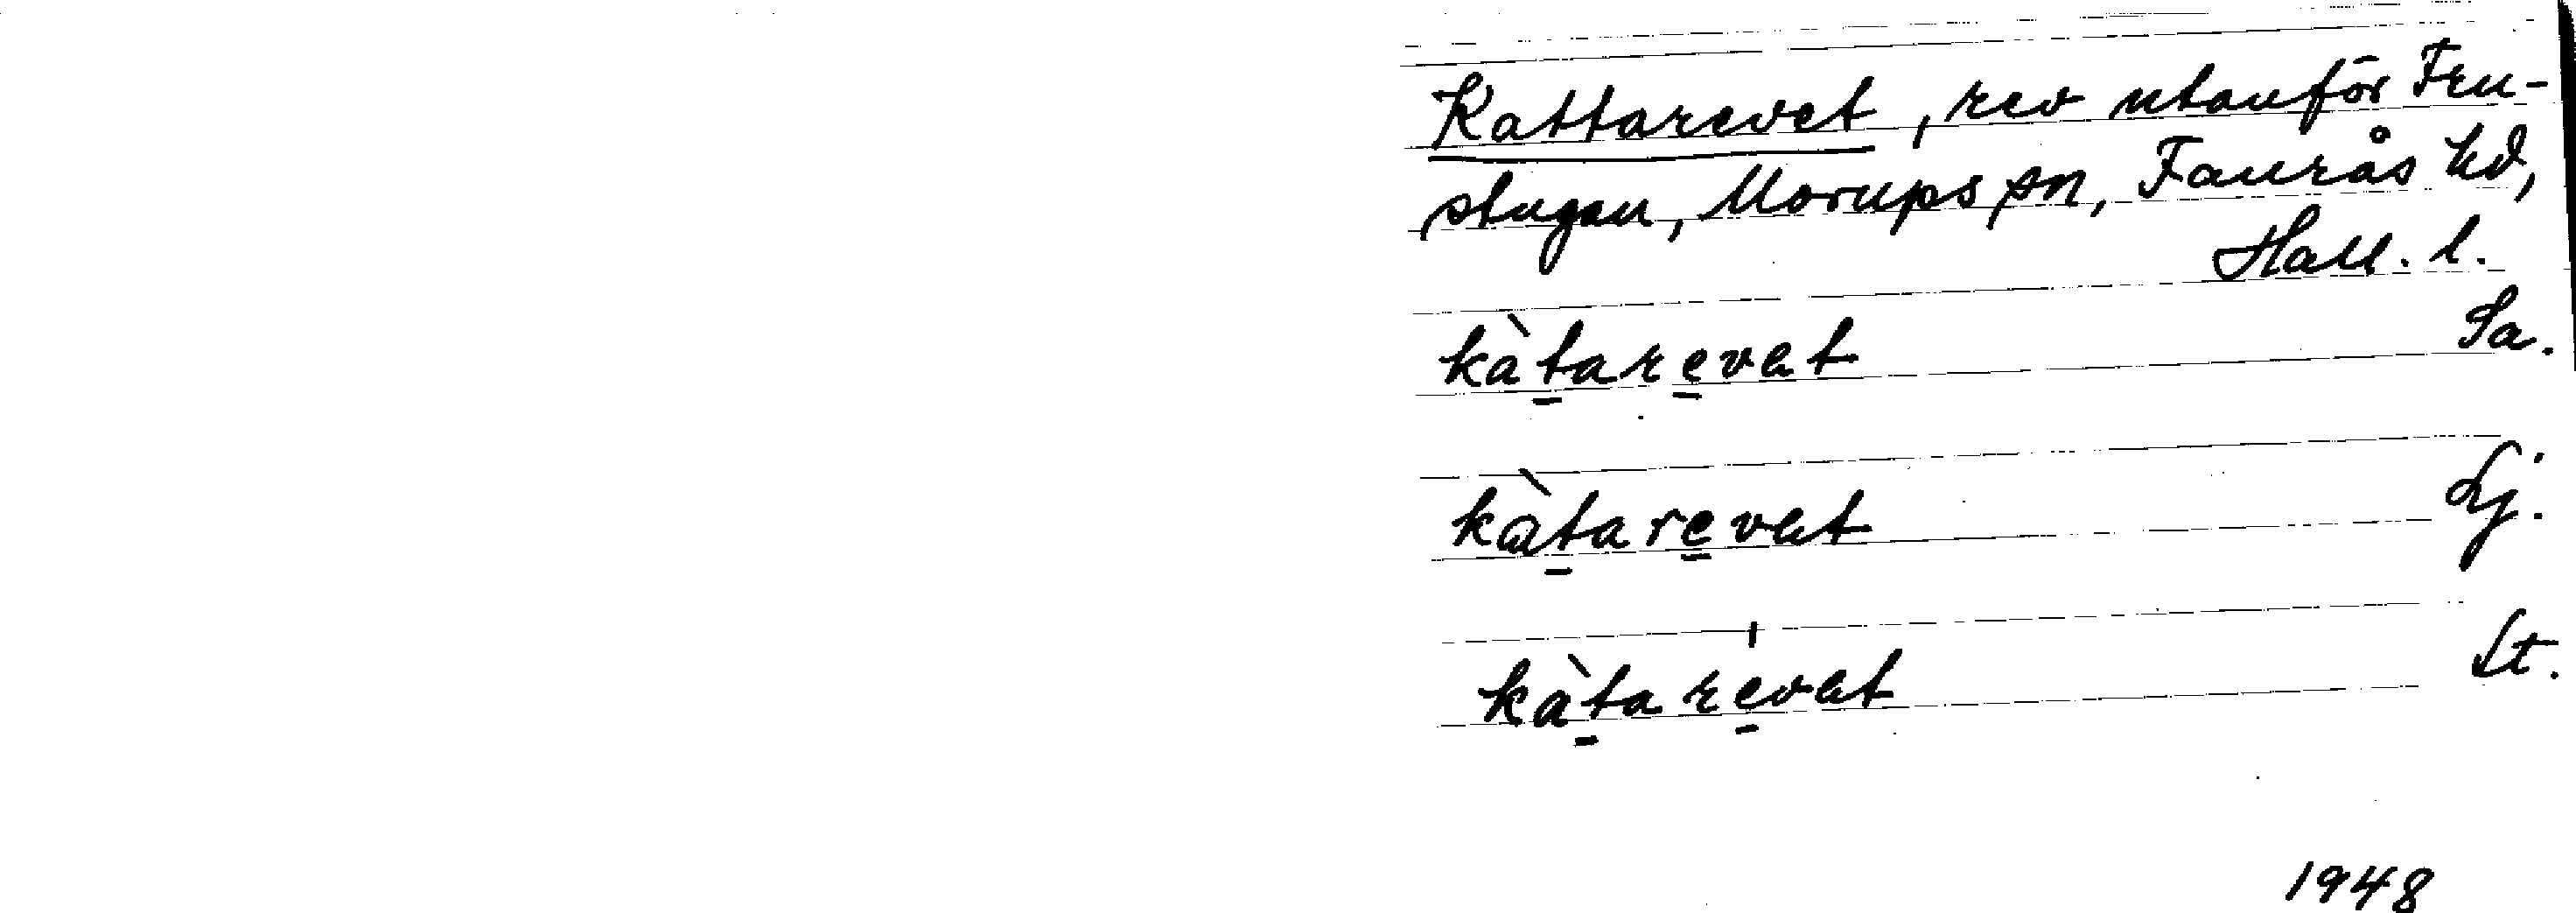 Kattarevet, rev utanför Fru-
stugan, Morups sn, Faurås hd,
Hall. l.
kàtarevet Sa.
kàtarevet Lj.
kàtarevet St.
1948